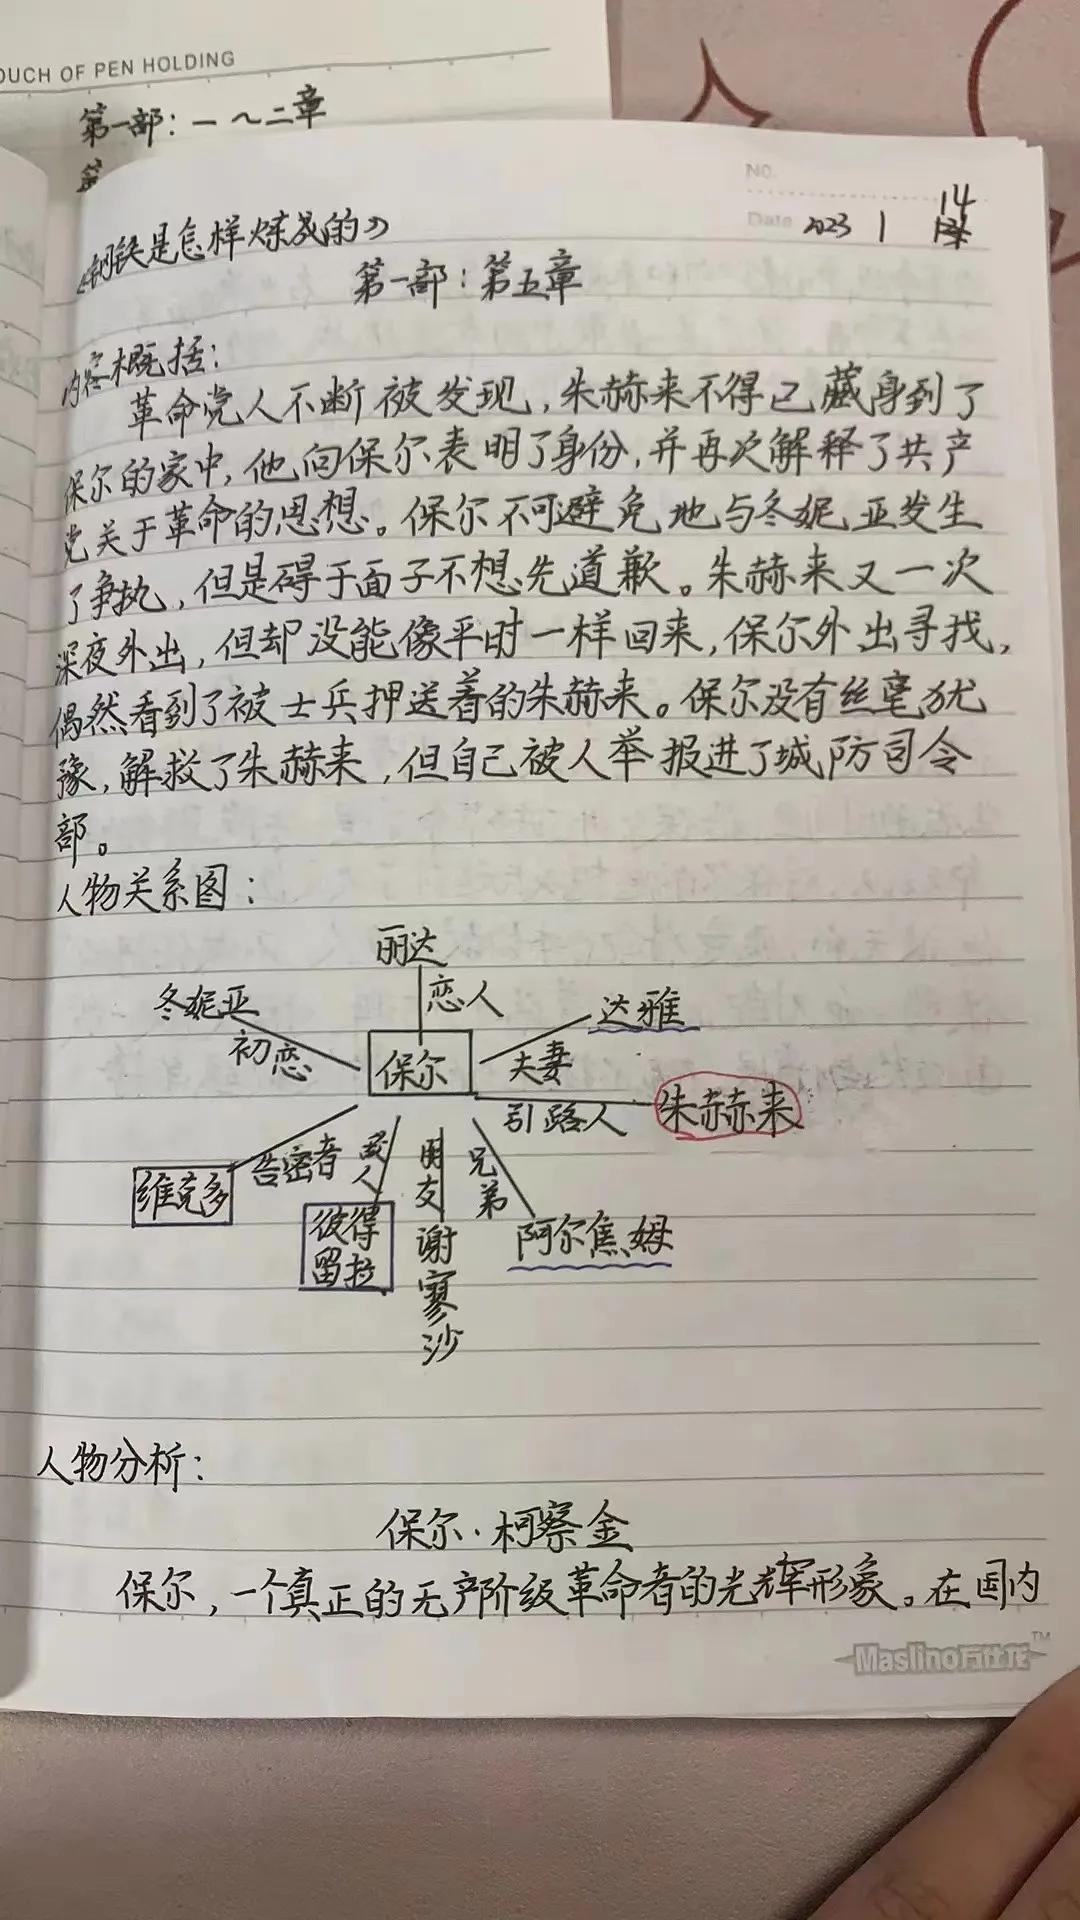 OUCH OF PEN HOLDING
第一部：一～二章
NO.
Date 2023 1 14
《钢铁是怎样炼成的》
第一部：第五章
内容概括：
革命党人不断被发现，朱赫来不得已藏身到了
保尔的家中，他向保尔表明了身份，并再次解释了共产
党关于革命的思想。保尔不可避免地与冬妮亚发生
了争执，但是碍于面子不想先道歉。朱赫来又一次
深夜外出，但却没能像平时一样回来，保尔外出寻找，
偶然看到了被士兵押送着的朱赫来。保尔没有丝毫犹
豫，解救了朱赫来，但自己被人举报进了城防司令
部。
人物关系图：
丽达
恋人
冬妮亚
初恋
达雅
夫妻
保尔
引路人
朱赫来
维克多
告密者
敌人
彼得留拉
朋友
谢寥沙
兄弟
阿尔焦姆
人物分析：
保尔·柯察金
保尔，一个真正的无产阶级革命者的光辉形象。在国内
Maslino玛仕龙™